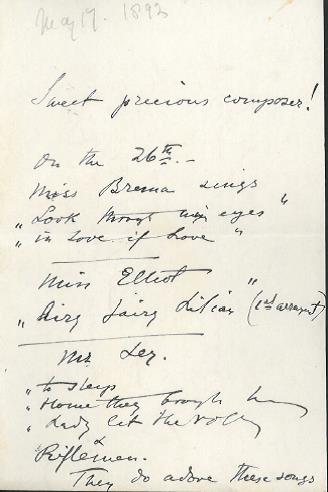 May 17. 1892
Sweet precious composer!
On the 26th. -
Miss Brema sings
"Look through mine eyes"
"in Love if Love"
Miss Elliot
"Airy fairy Lilian" (1st arrangt)
Mr Ley.
"to sleep
"Home they brought h
"Lady let the roll
&
Riflemen.
They do adore these songs